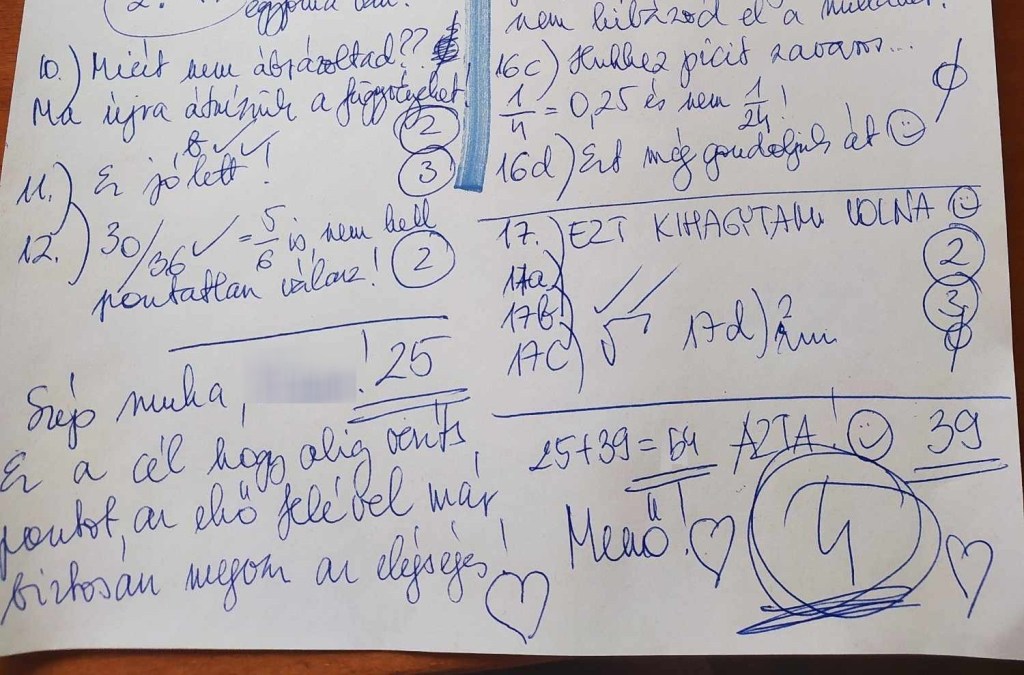 2.
egyforma
10.) Miért nem ábrázoltad??
Ma újra átnézzük a függvényeket!
2
11.) Ez jó lett!
3
12.) 30/36 = 5/6 is, nem kell
pontatlan válasz!
2
25
Szép munka, !
Ez a cél hogy alig veszíts
pontot, az első felével már
biztosan megvan az elégséges!
nem hibázod el a
16c) Hukkez picit zavaros...
1/4 = 0,25 és nem 1/24!
16d) Ezt még gondoljuk át
17.) EZT KIHAGYTAM VOLNA
17a)
2
17b)
3
17c)
17d)
39
25+39=64 AZTA!
Menő!
4